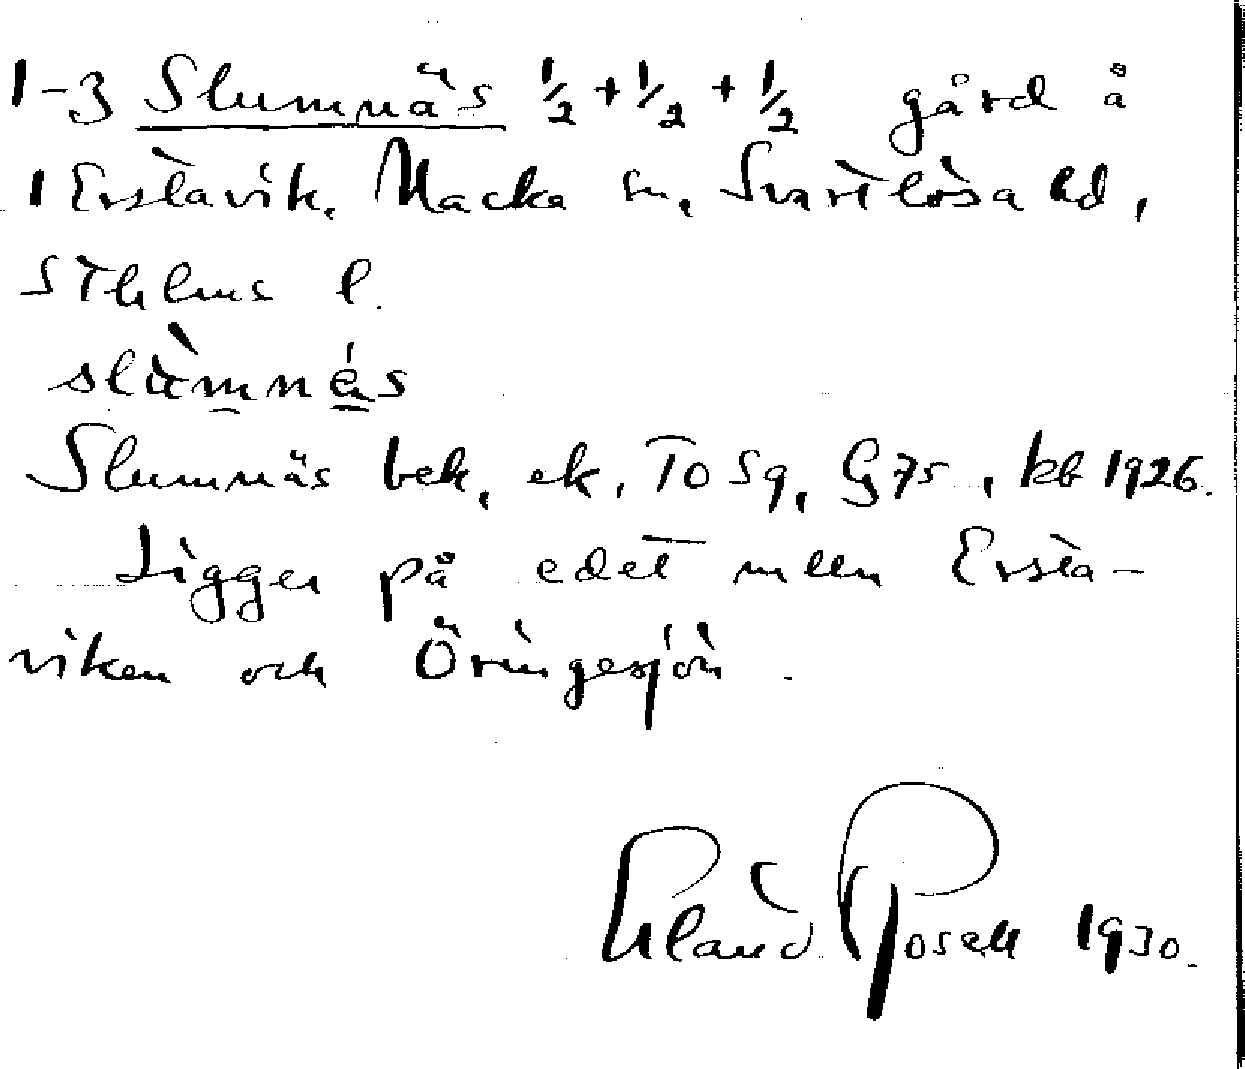 1-3 Slumnäs 1/2 + 1/2 + 1/2 gård å
1 Erstavik, Nacka sn, Svartlösa hd,
Sthlms l.
slùmnä́s
Slumnäs bek, ek, To Sq, G 75, kb 1926.
Ligger på edet mlln Ersta-
viken och Öringesjön.
Erland Rosell 1930.